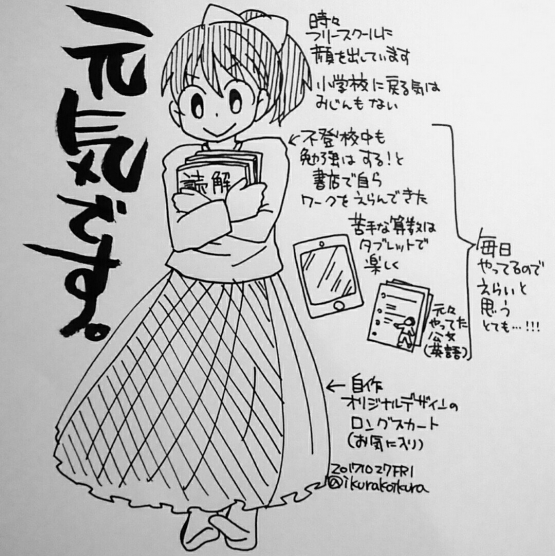 元気です。
時々
フリースクールに
顔を出しています
小学校に戻る気は
みじんもない
←不登校中も
勉強は する!と
書店で自ら
ワークをえらんできた
読解
苦手な算数は
タブレットで
楽しく
元々
やってた
公文
(英語)
毎日
やってるので
えらいと
思う
とても…!!!
← 自作
オリジナルデザインの
ロングスカート
(お気に入り)
20171027FRI
@ikurakoikura